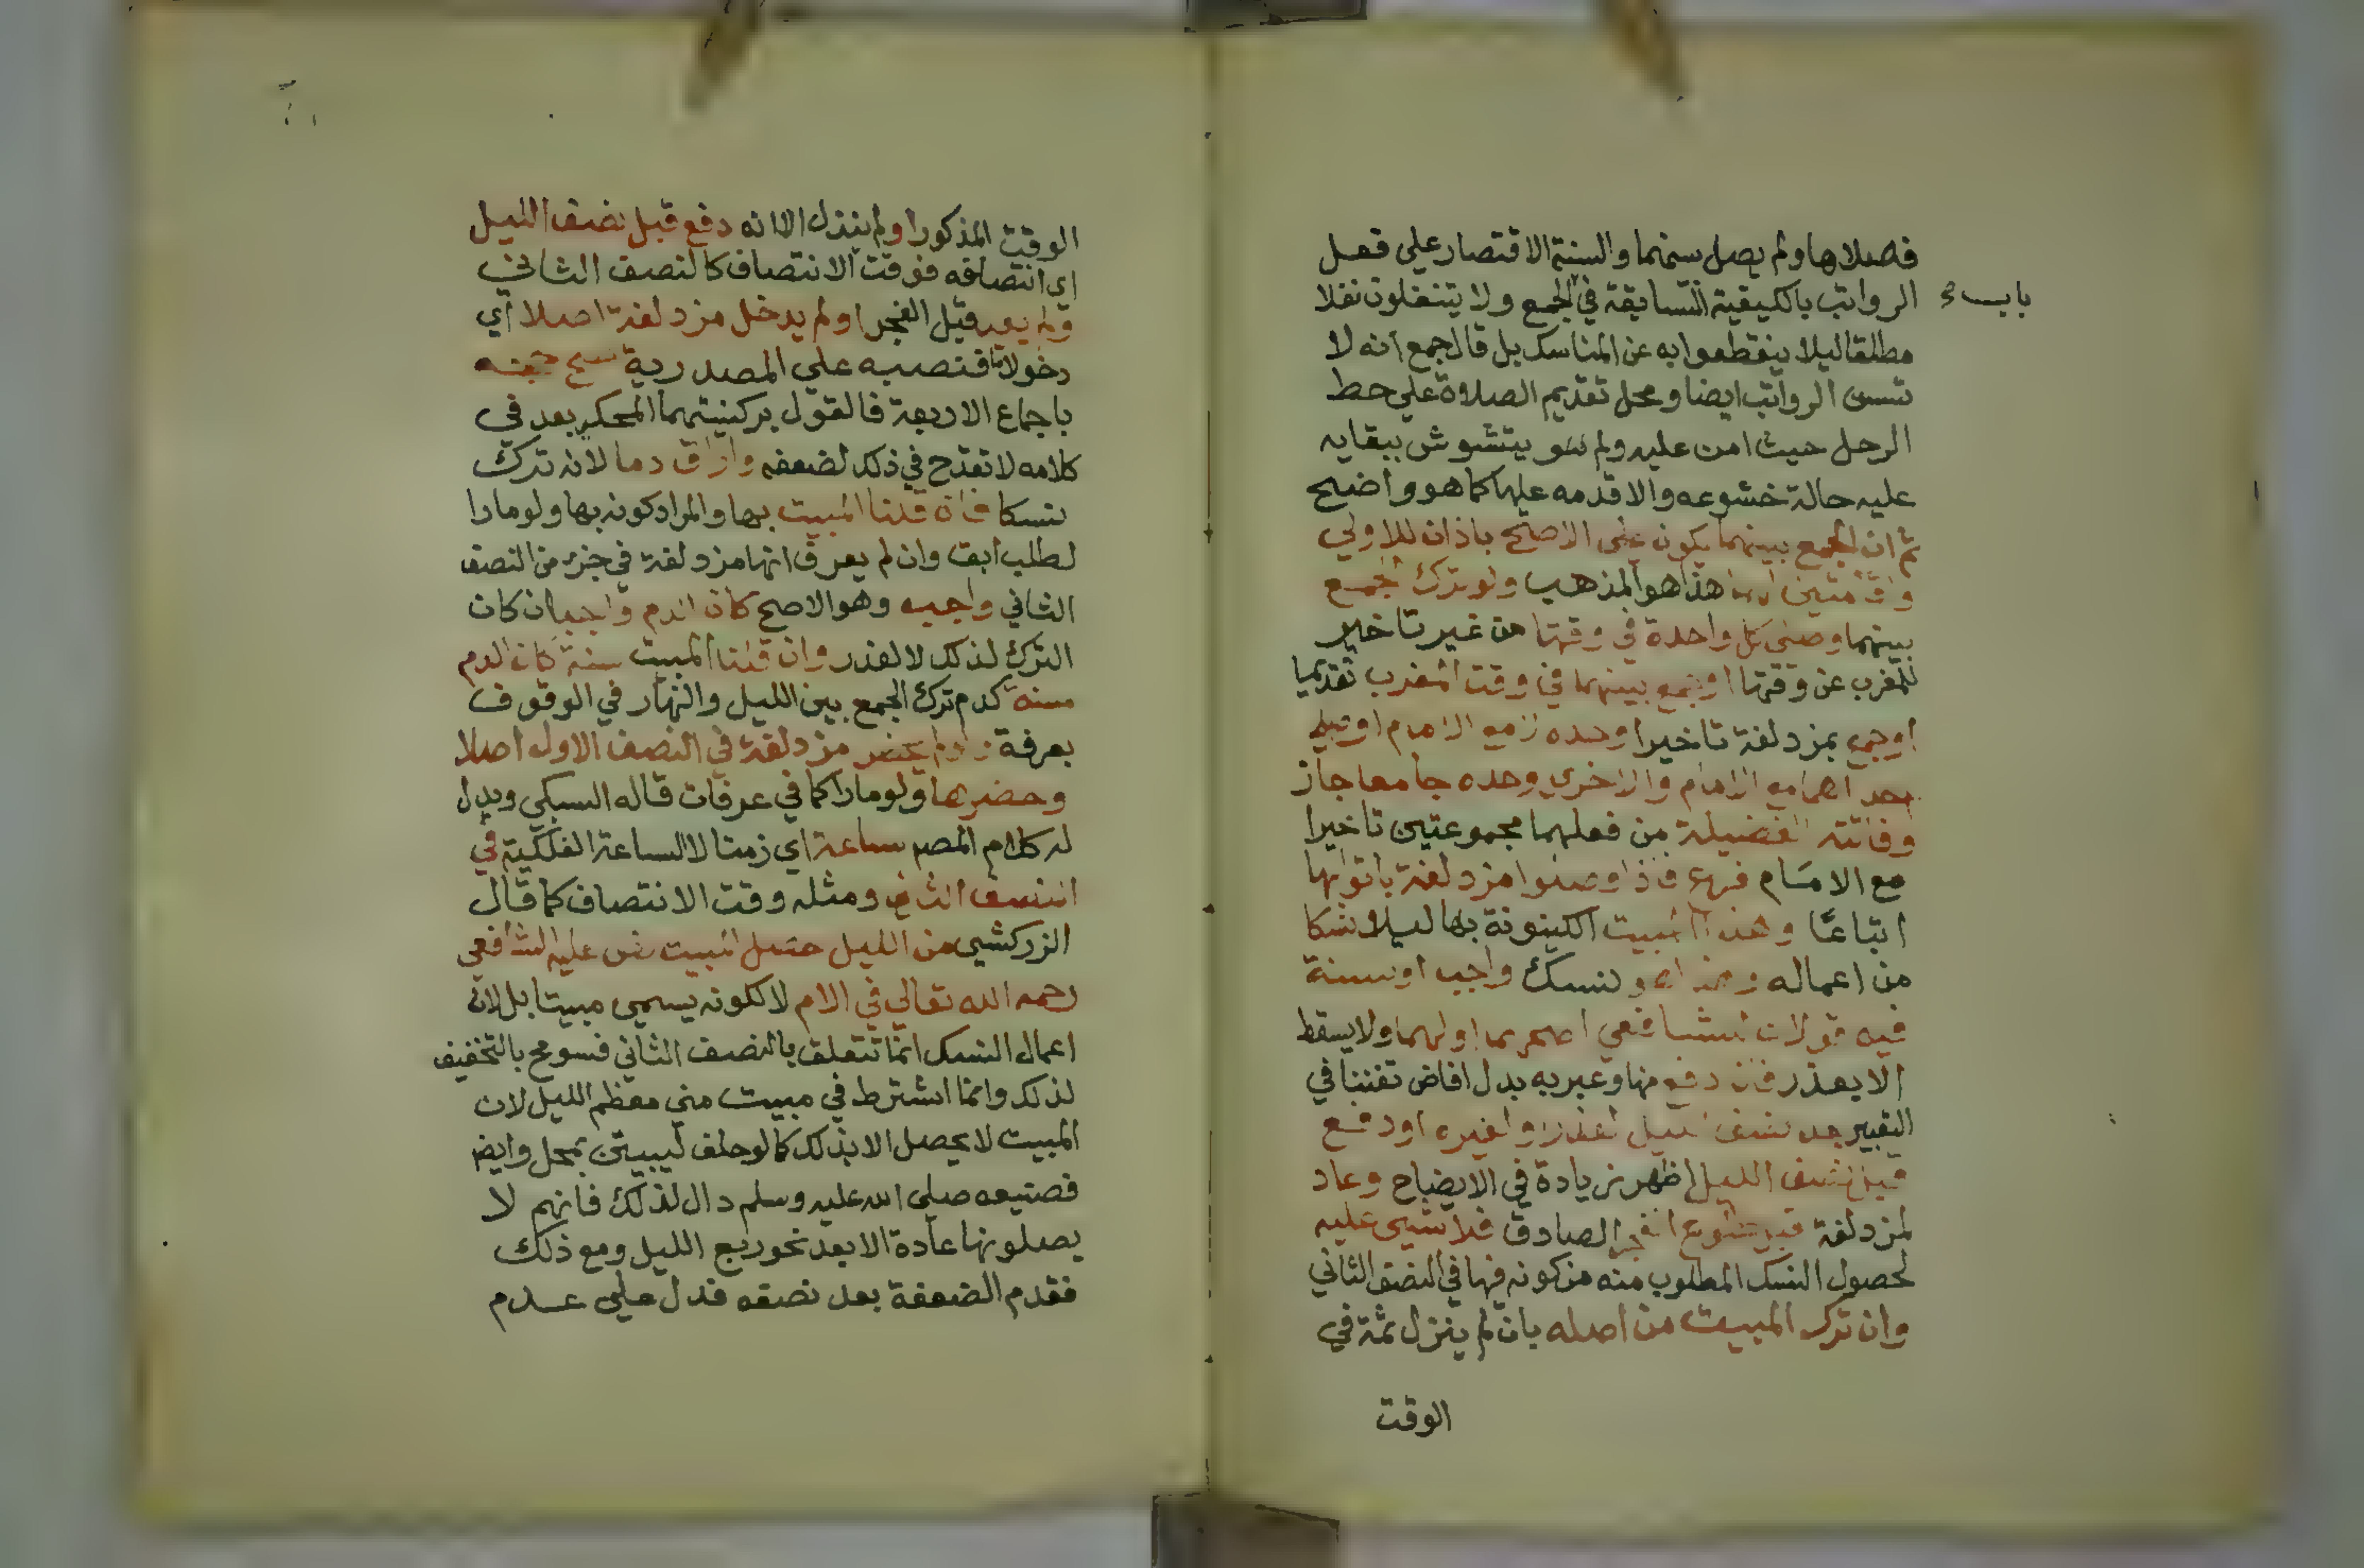 فصلاها ولم يصل سنتهما والسنة الاقتصار علي فعل
الرواتب بالكيفية السابقة في الجمع ولا يتنفلون نفلا
مطلقا ليلا ينقطعوا به عن المناسك بل قال جمع انه لا
تسن الرواتب ايضا ومحل تقديم الصلاة علي حط
الرحل حيث امن عليه ولم يتشوش ببقايه
عليه حالة خشوعه والا قدمه عليها كما هو واضح
ثم ان الجمع بينهما يكون علي الاصح باذان للاولي
واقامتين لهما هذا هو المذهب ولو ترك الجمع
بينهما وصلي كل واحدة في وقتها من غير تاخير
للمغرب عن وقتها او جمع بينهما في وقت المغرب تقديما
او جمع بمزدلفة تاخيرا وحده لا مع الامام او صلي
احداهما مع الامام والاخري وحده جامعا جاز
وفاتته الفضيلة من فعلهما مجموعتين تاخيرا
مع الامام فرع فاذا وصلوا مزدلفة باتوا بها
اتباعا وهذا المبيت الكينونة بها ليلا نسكا
من اعماله وهذا هو نسك واجب او سنة
فيه قولان للشافعي اصحهما اولهما ولا يسقط
الا بعذر فان دفع منها وعبر به بدل افاض تفننا في
التعبير بعد نصف الليل لعذر او لغيره او دفع
قبل نصف الليل اظهر زيادة في الايضاح وعاد
لمزدلفة قبل طلوع الفجر الصادق فلا شيى عليه
لحصول النسك المطلوب منه من كونه فيها في النصف الثاني
وان ترك المبيت من اصله بان لم ينزل ثمة في
الوقت
الوقت المذكور او لم ينزل الا انه دفع قبل نصف الليل
اي انتصافه فوقت الانتصاف كالنصف الثاني
ولم يعد قبل الفجر او لم يدخل مزدلفة اصلا اي
دخولا ما فنصبه علي المصدرية صح حجه
باجماع الاربعة فالقول بركنيتهما المحكي بعد في
كلامه لا تقدح في ذلك لضعفه واراق دما لانه ترك
نسكا فان قلنا المبيت بها والمراد كونه بها ولو مارا
لطلب ابق وان لم يعرف انها مزدلفة في جزء من النصف
الثاني واجب وهو الاصح كان الدم واجبا ان كان
الترك لذلك لا لعذر وان قلنا المبيت سنة كان الدم
سنة كدم ترك الجمع بين الليل والنهار في الوقوف
بعرفة ولو لم يحضر مزدلفة في النصف الاول اصلا
وحضرها ولو مارا كما في عرفات قاله السبكي ويدل
له كلام المصم ساعة اي زمنا لا الساعة الفلكية في
النصف الثاني ومثله وقت الانتصاف كما قال
الزركشي من الليل حصل المبيت نص عليه الشافعي
رحمه الله تعالي في الام لا لكونه يسمي مبيتا بل لان
اعمال النسك انما تتعلق بالنصف الثاني فسومح بالتخفيف
لذلك وانما اشترط في مبيت مني معظم الليل لان
المبيت لا يحصل الا بذلك كما لو حلف ليبيتن بمحل وايضا
فصنيعه صلي الله عليه وسلم دال لذلك فانهم لا
يصلونها عادة الا بعد نحو ربع الليل ومع ذلك
فقدم الضعفة بعد نصفه فدل علي عدم